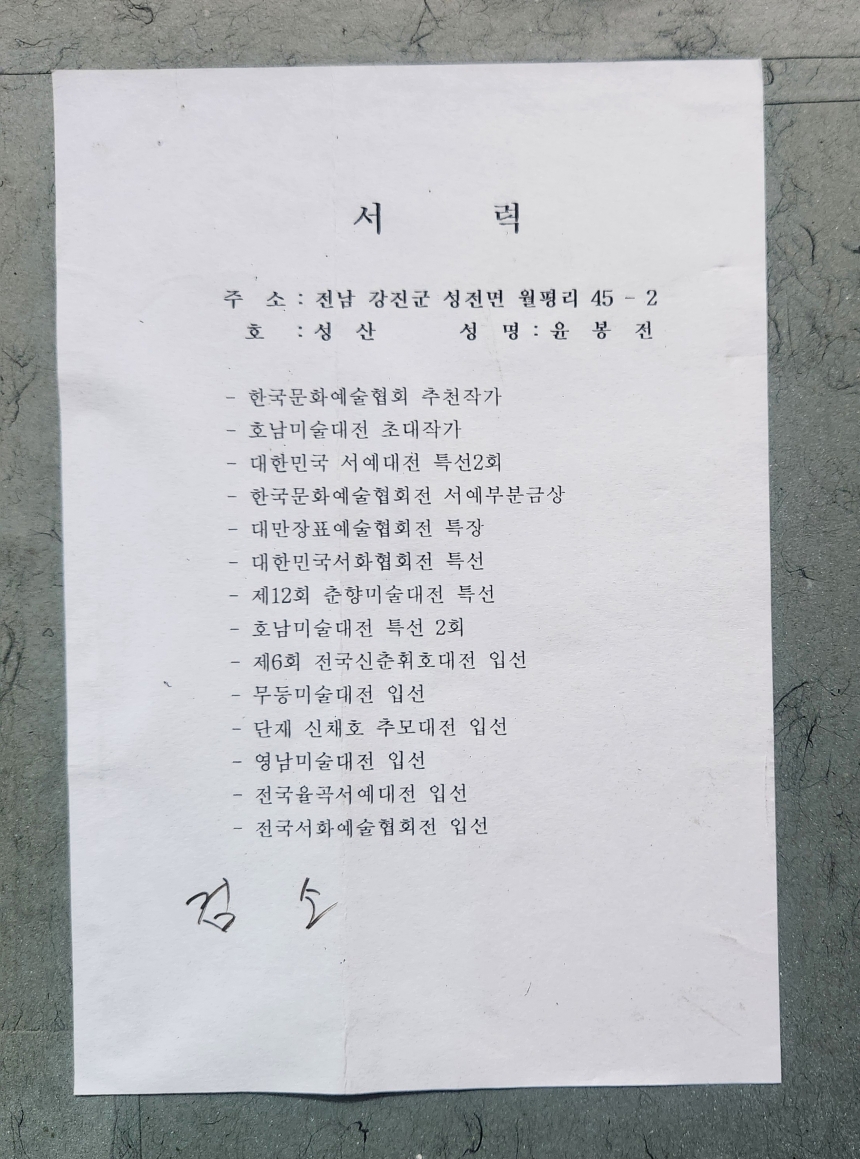 서 력
주 소 : 전남 강진군 성전면 월평리 45 - 2
호 : 성 산 성 명 : 윤 봉 전
- 한국문화예술협회 추천작가
- 호남미술대전 초대작가
- 대한민국 서예대전 특선2회
- 한국문화예술협회전 서예부분금상
- 대만장표예술협회전 특장
- 대한민국서화협회전 특선
- 제12회 춘향미술대전 특선
- 호남미술대전 특선 2회
- 제6회 전국신춘휘호대전 입선
- 무등미술대전 입선
- 단재 신채호 추모대전 입선
- 영남미술대전 입선
- 전국율곡서예대전 입선
- 전국서화예술협회전 입선
겸 소